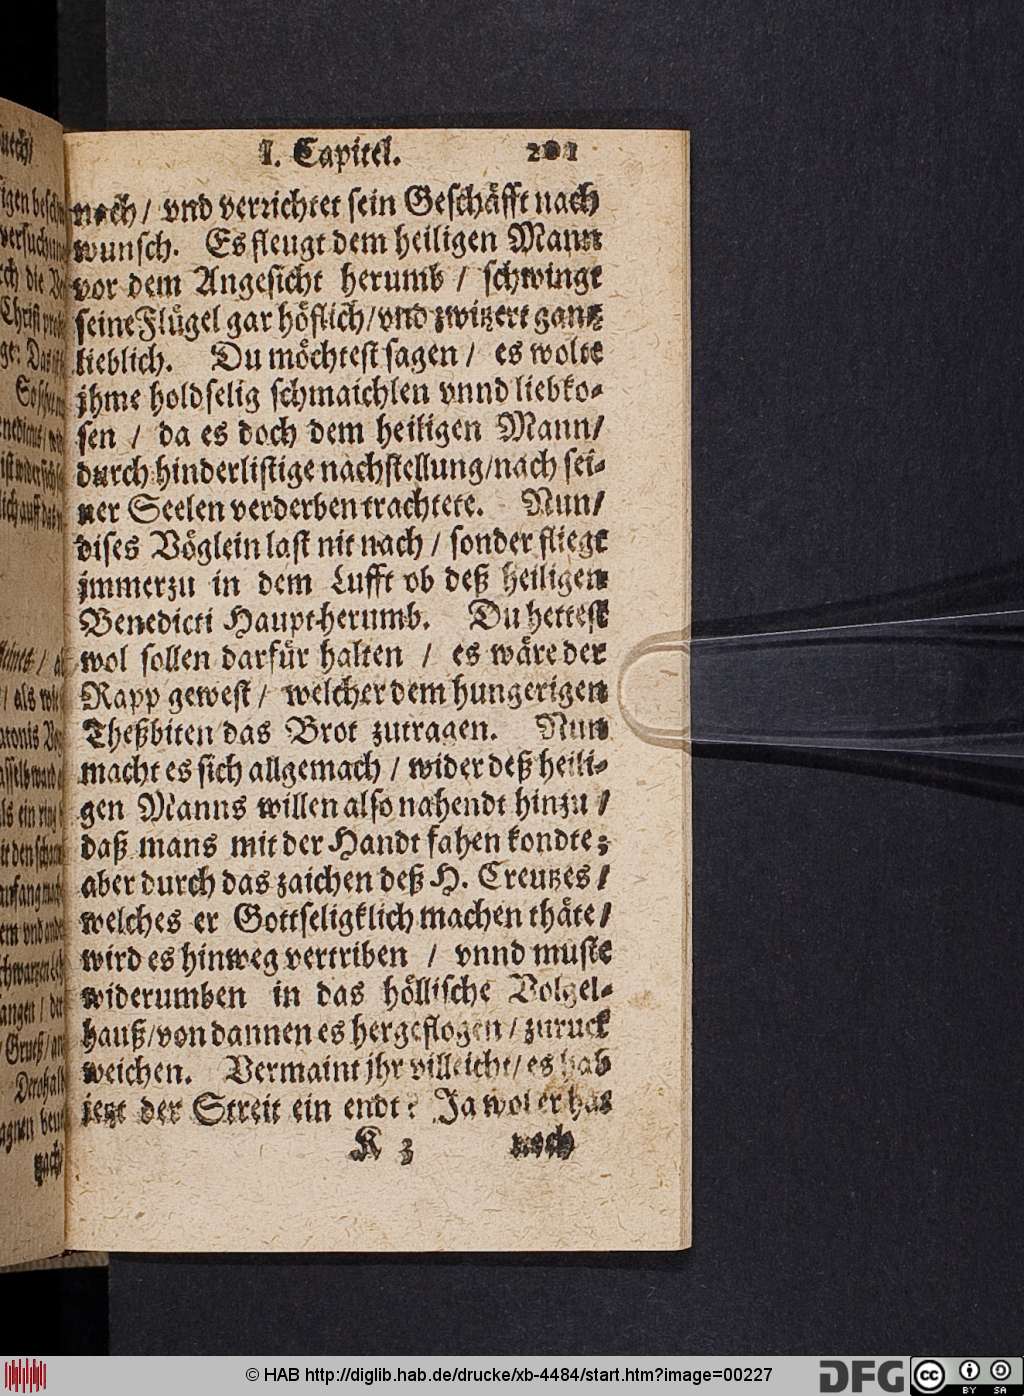 I. Capitel. 201
nach / vnd verrichtet sein Geschäfft nach
wunsch. Es fleugt dem heiligen Mann
vor dem Angesicht herumb / schwingt
seine Flügel gar höflich / vnd zwitzert gantz
lieblich. Du möchtest sagen / es wolte
jhme holdselig schmaichlen vnnd liebko-
sen / da es doch dem heiligen Mann /
durch hinderlistige nachstellung / nach sei-
ner Seelen verderben trachtete. Nun /
dises Vöglein last nit nach / sonder fliegt
jmmerzu in dem Lufft ob deß heiligen
Benedicti Haupt herumb. Du hettest
wol sollen darfür halten / es wäre der
Rapp gewest / welcher dem hungerigen
Theßbiten das Brot zutragen. Nun
macht es sich allgemach / wider deß heili-
gen Manns willen also nahendt hinzu /
daß mans mit der Handt fahen kondte;
aber durch das zaichen deß H. Creutzes /
welches er Gottseligklich machen thäte /
wird es hinweg vertriben / vnnd muste
widerumben in das höllische Volgel-
hauß / von dannen es hergeflogen / zuruck
weichen. Vermaint jhr villeicht / es hab
jetzt der Streit ein endt? Ja wol er hat
K 3 noch
© HAB http://diglib.hab.de/drucke/xb-4484/start.htm?image=00227
DFG
cc BY SA